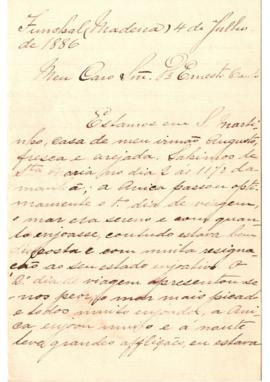 Funchal (Madeira) 4 de Julho
de 1886
Meu Caro Snr. Dr. Ernesto
Estamos em S. Marti-
nho, casa de meu irmão Augusto,
fresca e arejada. Sahimos de
Sta. Maria no dia 2 ás 11 1/2 da
manhã; a Anica passou opti-
mamente o 1º dia de viagem,
o mar era sereno e com quan-
to enjoasse, comtudo estava bem
disposta e com muita resigna-
ção ao seu estado enjoativo. O
2º dia de viagem apresentou-se-
nos peor, o mar mais picado
e todos muito enjoados, a Ani-
ca enjoou muito e a noute
teve grandes afflições, eu estava